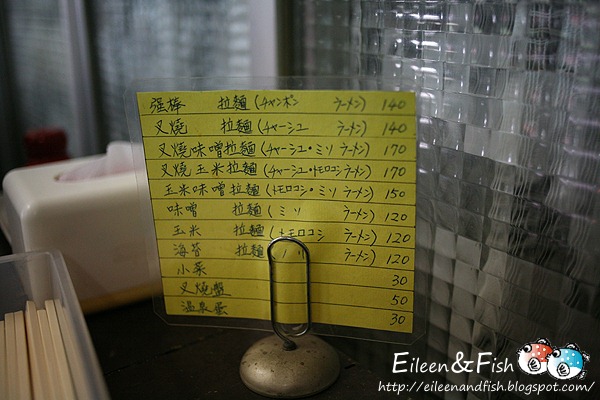 强棒 拉麵 (チャンポン ラーメン) 140
叉燒 拉麵 (チャーシュー ラーメン) 140
叉燒味噌拉麵 (チャーシュー・ミソ ラーメン) 170
叉燒玉米拉麵 (チャーシュー・トモロコシ ラーメン) 170
玉米味噌拉麵 (トモロコシ・ミソ ラーメン) 150
味噌 拉麵 (ミソ ラーメン) 120
玉米 拉麵 (トモロコシ ラーメン) 120
海苔 拉麵 (ノリ ラーメン) 120
小菜 30
叉燒盤 50
溫泉蛋 30
Eileen&Fish
http://eileenandfish.blogspot.com/